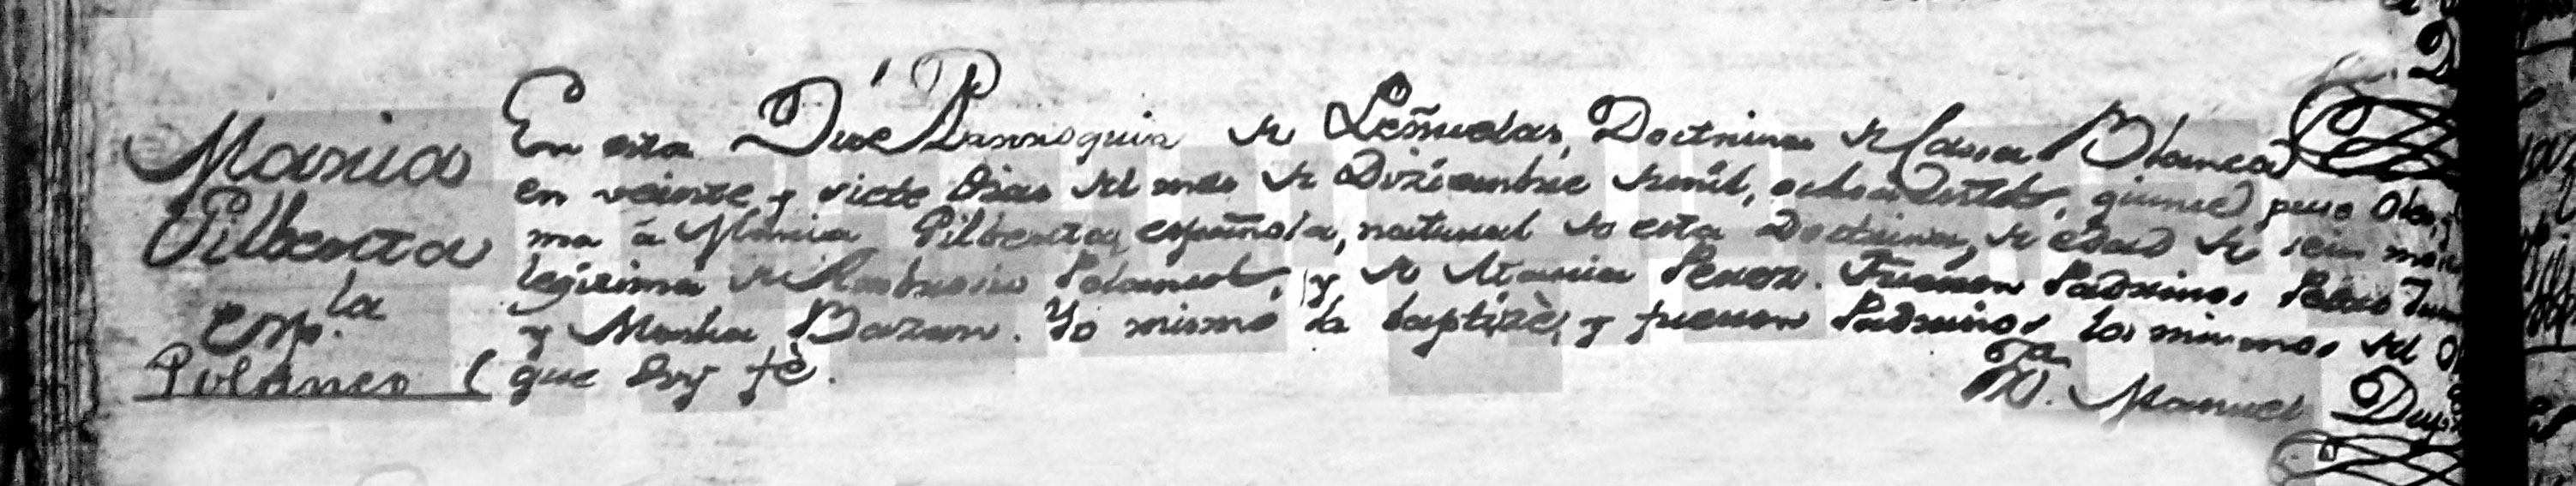 Maria
Pilberta
Esp.la
Polanco
En esta Vice Parroquia de Leñuelas, Doctrina de Casa Blanca
en veinte y siete dias del mes de Diziembre de mil, ochocientos, puse Oleo, y
ma á Maria Pilberta, española, natural de esta Doctrina, de edad de seis mes
legitima de Ambrosio Polanco, y de Maria Perez. Fueron Padrinos Pedro
y Marha Bazan. Yo mismo la baptizè, y fueron Padrinos los mismos del
que doy fè.
Manuel